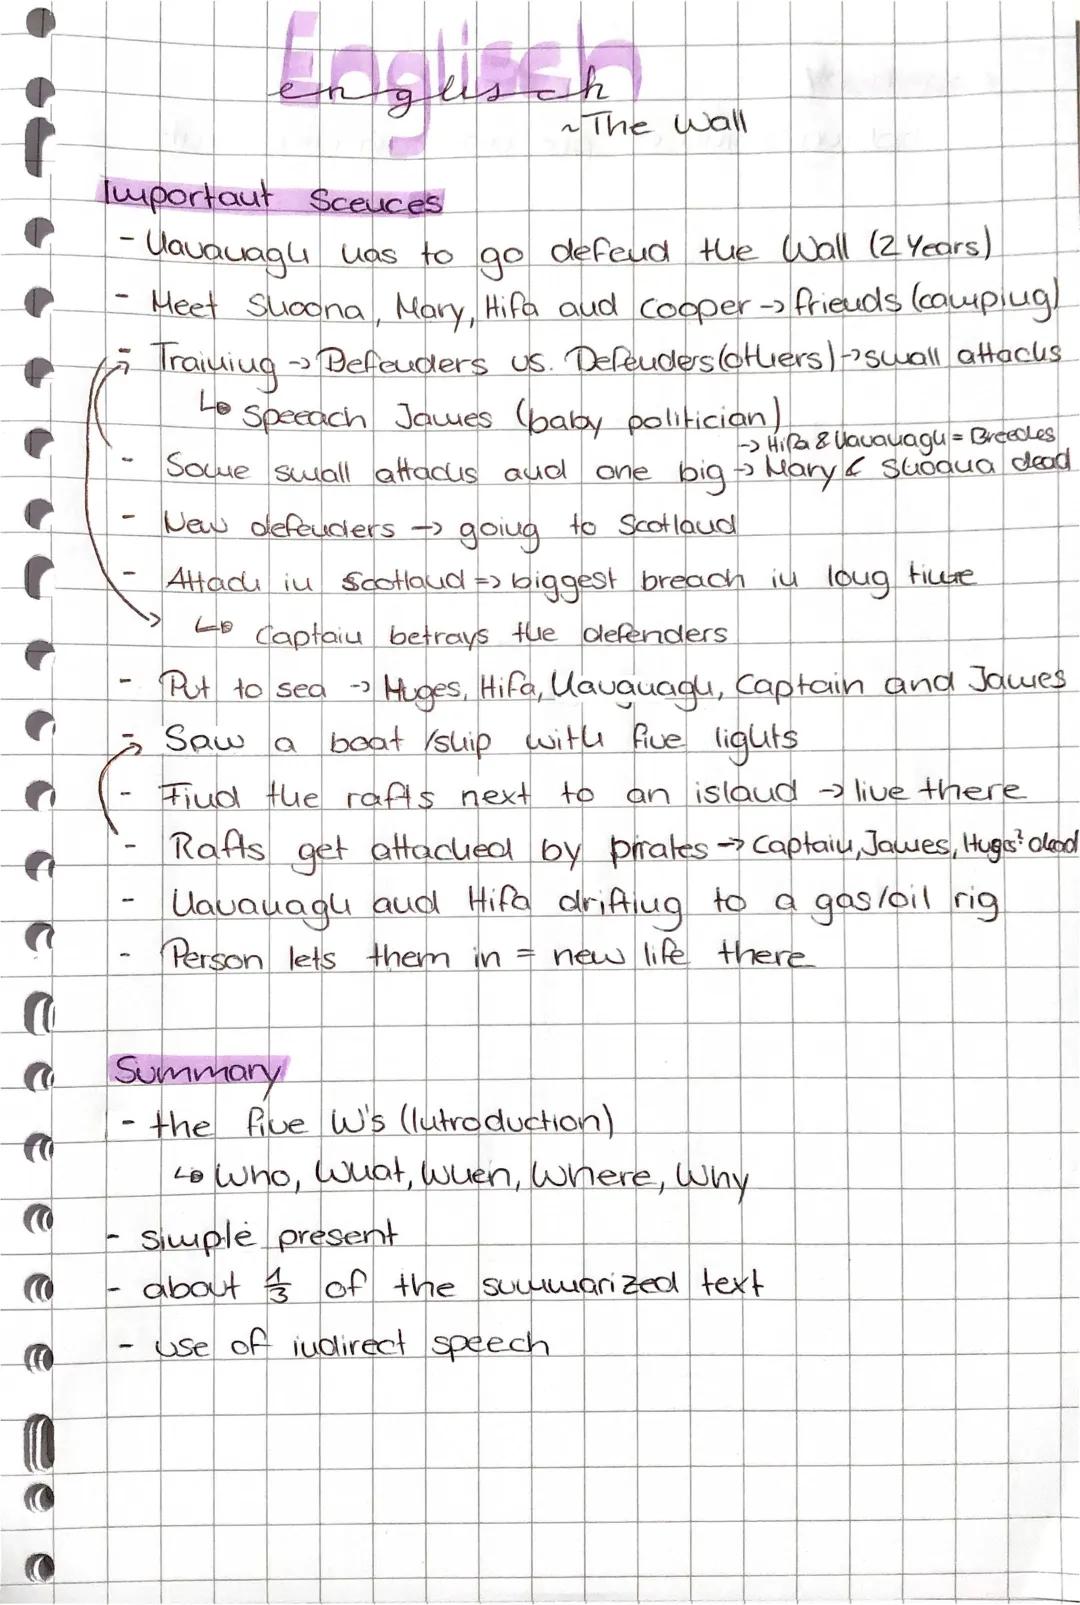 Englisch
englisch
~The Wall
Important Scences
- Kavanagh has to go defend the Wall (2 Years)
- Meet Shoona, Mary, Hifa and Cooper -> friends (camping)
- Training -> Defenders vs. Defenders (others) -> small attacks
↳ Speeach James (baby politician)
-> Hifa & Kavanagh = Breeders
- Some small attacks and one big -> Mary & Shoona dead
- New defenders -> going to Scotland
- Attack in Scotland => biggest breach in long time
↳ Captain betrays the defenders
- Put to sea -> Huges, Hifa, Kavanagh, Captain and James
- Saw a boat/ship with five lights
- Find the rafts next to an island -> live there
- Rafts get attacked by pirates -> Captain, James, Huges? dead
- Kavanagh and Hifa drifting to a gas/oil rig
- Person lets them in = new life there
Summary
- the five W's (Introduction)
↳ Who, What, When, Where, Why
- simple present
- about 1/3 of the summarized text
- use of indirect speech